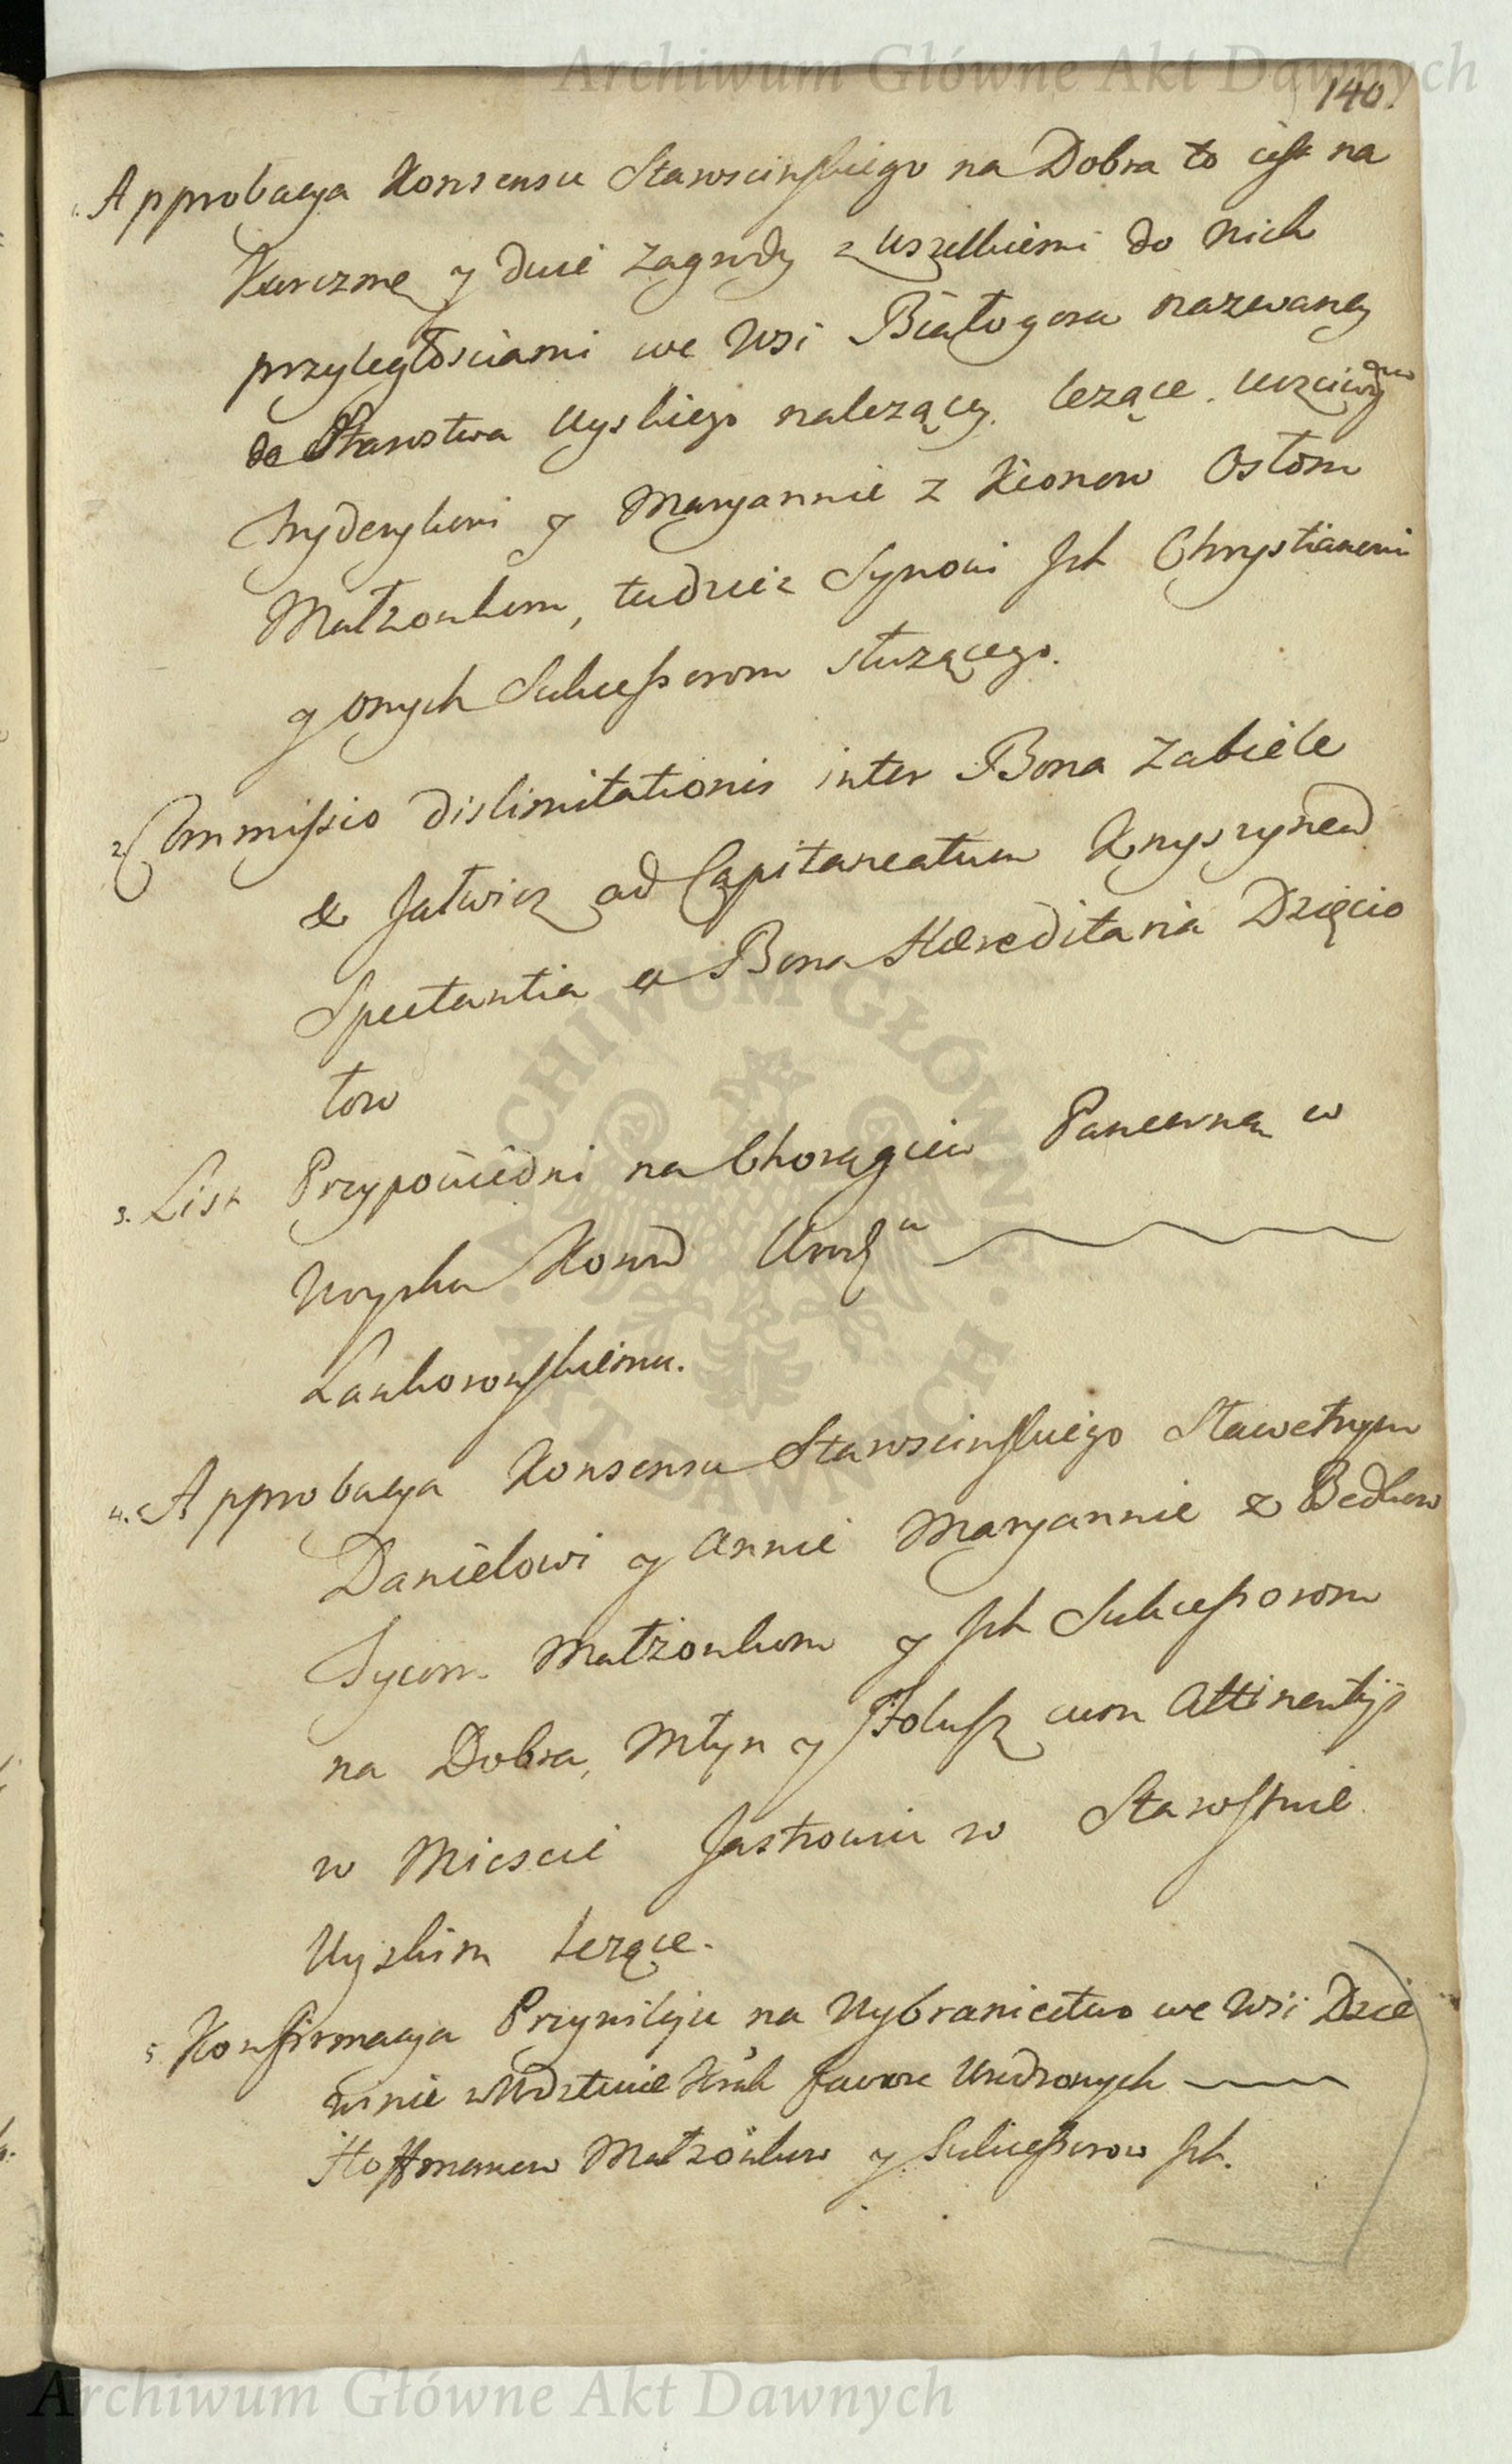 Archiwum Główne Akt Dawnych
140.
1. Approbacya Konsensu Staroscinskiego na Dobra to iest na
Karczmę y dwie Zagrody z wszelkiemi do nich
przyległościami we Wsi Białogora nazwaney
do Starostwa Uyskiego nalezącey. lezące. Uczciwym
Fryderykowi y Maryannie z Kionow Osłom
Małzonkom, tudziez Synowi Jch Chrystianowi
y onych Sukcessorom słuzącego.
2. Commissio dislimitationis inter Bona Zabiele
et Jatwicz ad Capitaneatum Knyszynen
Spectantia et Bona Hæreditaria Dzięcio
łow
3. List Przypowiedni na Chorągiew Pancerną w
Woysku Koron Urodz
Lankoronskiemu.
4. Approbacya Konsensu Staroscinskiego Sławetnym
Danielowi y Annie Maryannie z Bedkow
Małzonkom y Jch Sukcessorom
na Dobra, Młyn y Folusz cum Attinentijs
w Miescie Jastrowiu w Starostwie
Uyskim lezące.
5. Konfirmacya Przywileju na Wybraniectwo we Wsi
favore Urodzonych
Hoffmanow Małzonkow y Sukcessorow Jch.
ARCHIWUM GŁÓWNE AKT DAWNYCH
Archiwum Główne Akt Dawnych